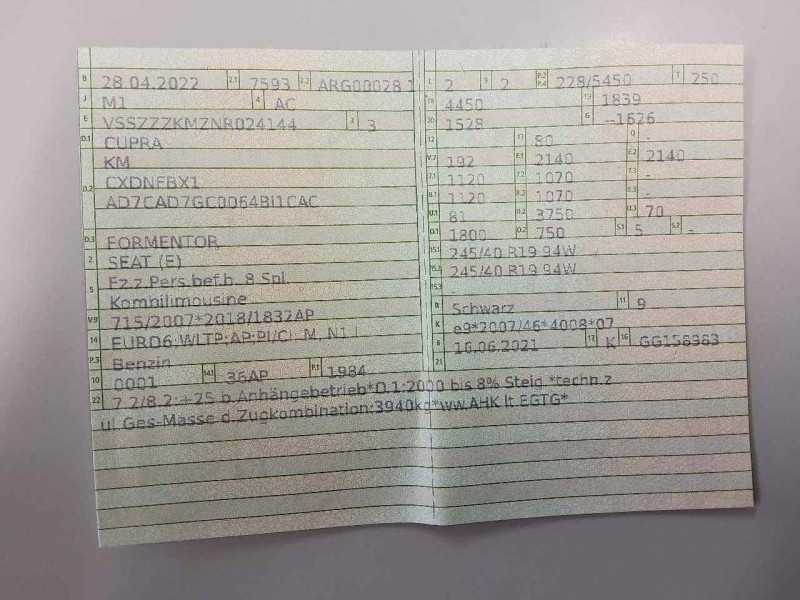 B 28.04.2022 2.1 7593 2.2 ARG00028 1
J M1 4 AC
E VSSZZZKMZNR024144 3 3
D.1 CUPRA
KM
D.2 CXDNFBX1
AD7CAD7GC0064BI1CAC
D.3 FORMENTOR
2 SEAT (E)
5 Fz.z.Pers.bef.b. 8 Spl.
Kombilimousine
V.9 715/2007*2018/1832AP
14 EURO6;WLTP;AP;PI/CI; M, N1 I
P.3 Benzin
10 0001 14.1 36AP P.1 1984
22 7.2/8.2:+25 b.Anhängebetrieb*O.1:2000 bis 8% Steig.*techn.z
ul.Ges-Masse d.Zugkombination:3940kg*ww.AHK lt.EGTG*
L 2 9 2 P.2 P.4 228/5450 T 250
18 4450 19 1839
20 1528 G --1626
12 - 13 80 Q -
V.7 192 F.1 2140 F.2 2140
7.1 1120 7.2 1070 7.3 -
8.1 1120 8.2 1070 8.3 -
U.1 81 U.2 3750 U.3 70
O.1 1800 O.2 750 S.1 5 S.2 -
15.1 245/40 R19 94W
15.2 245/40 R19 94W
15.3 -
R Schwarz 11 9
K e9*2007/46*4008*07
6 16.06.2021 17 K 16 GG158963
21